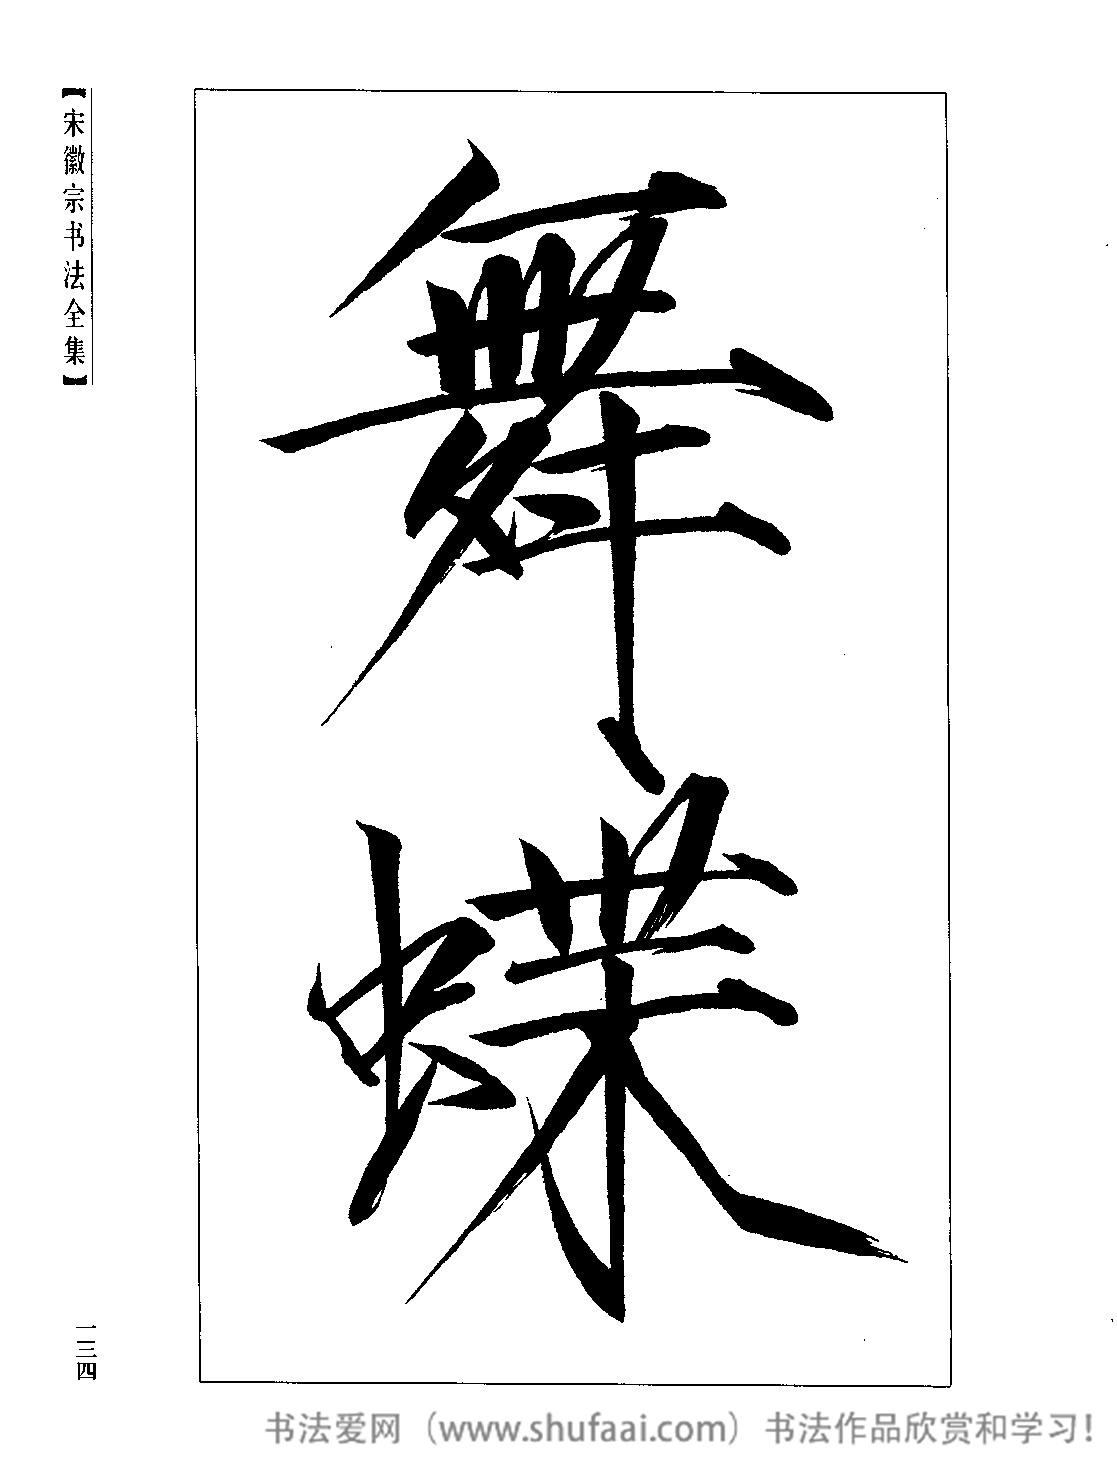 【宋徽宗书法全集】
舞蝶
一三四
书法爱网（www.shufaai.com）书法作品欣赏和学习！